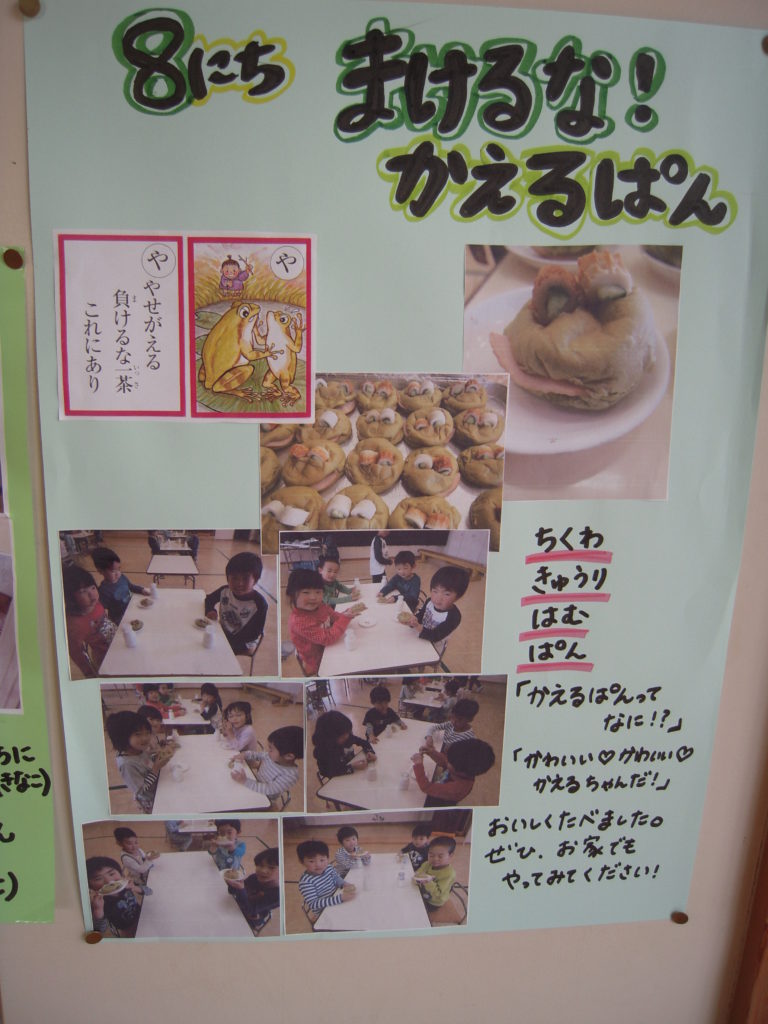 8にち
まけるな!
かえるぱん
や
やせがえる
負けるな一茶
ま
いっさ
これにあり
や
ちくわ
きゅうり
はむ
ぱん
「かえるぱんって
なに!?」
「かわいい♡かわいい♡
かえるちゃんだ!」
おいしくたべました。
ぜひ、お家でも
やってみてください!
きなこ)